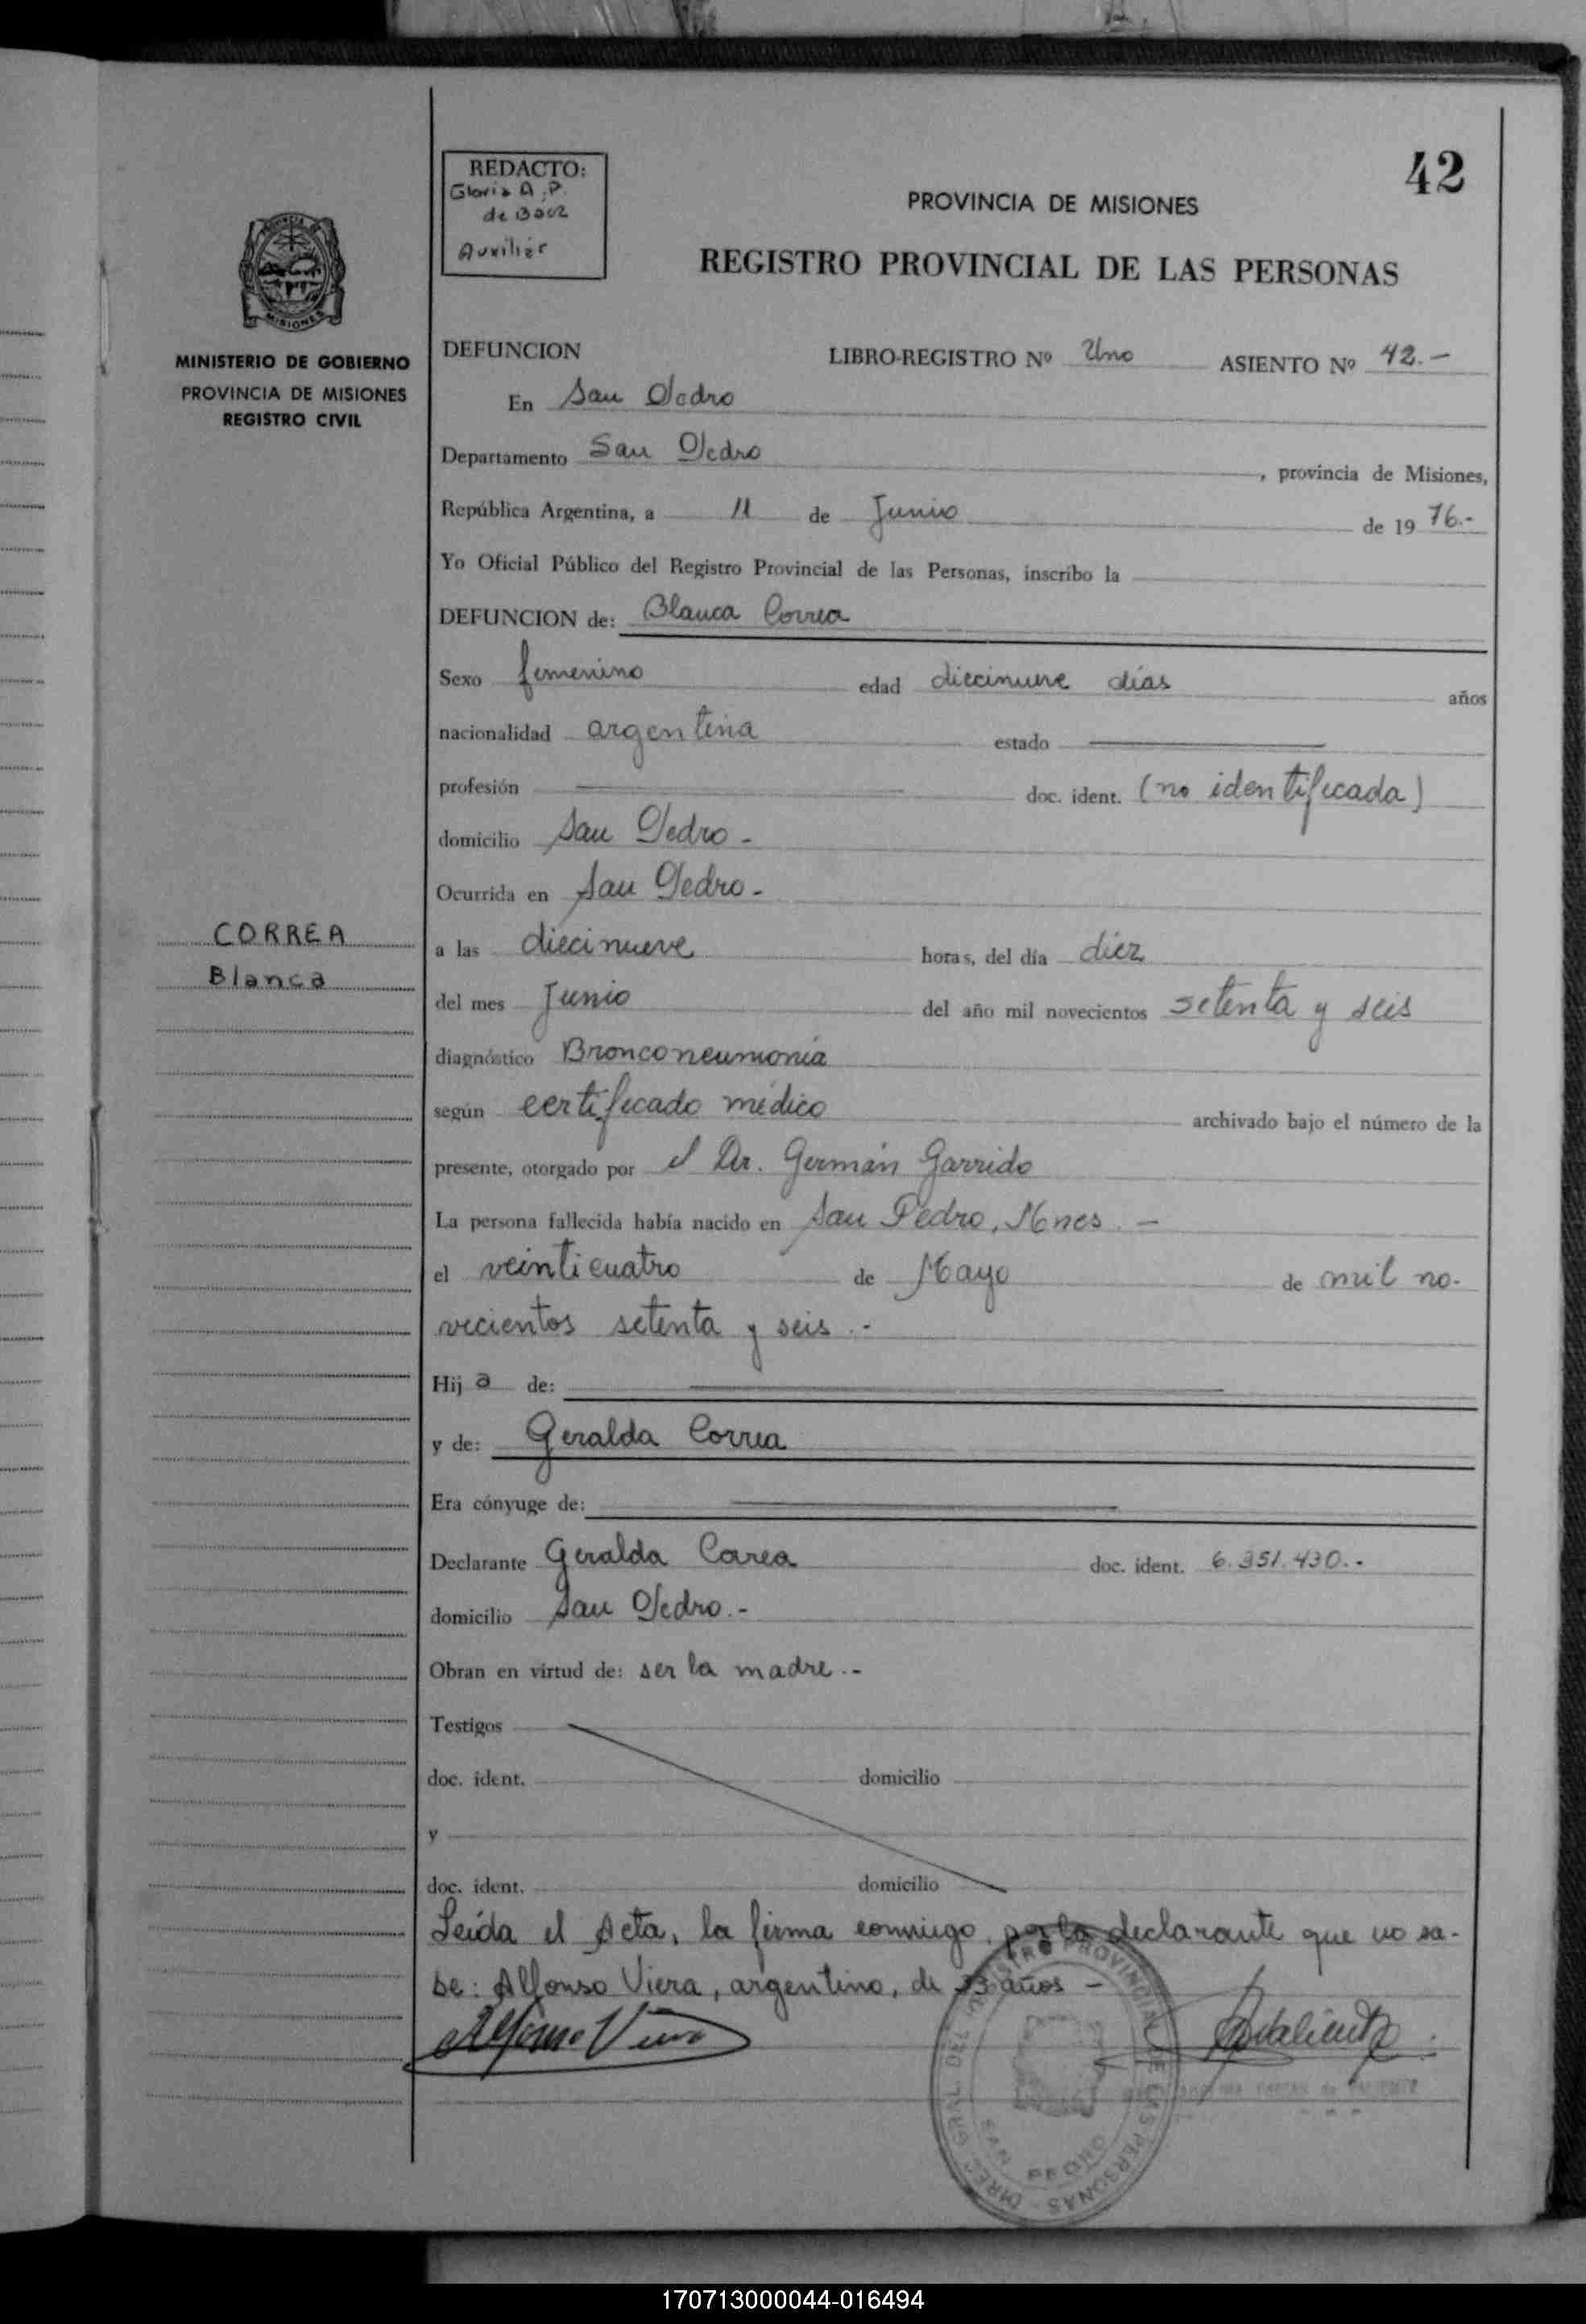 42
REDACTO:
Gloria A. P.
de Baez
Auxiliar
PROVINCIA DE MISIONES
REGISTRO PROVINCIAL DE LAS PERSONAS
MISIONES
MINISTERIO DE GOBIERNO
PROVINCIA DE MISIONES
REGISTRO CIVIL
DEFUNCION LIBRO-REGISTRO Nº Uno ASIENTO Nº 42.-
En San Pedro
Departamento San Pedro, provincia de Misiones,
República Argentina, a 11 de Junio de 1976.-
Yo Oficial Público del Registro Provincial de las Personas, inscribo la
DEFUNCION de: Blanca Correa
Sexo femenino edad diecinueve días años
nacionalidad argentina estado
profesión doc. ident. (no identificada)
domicilio San Pedro -
Ocurrida en San Pedro -
CORREA
Blanca
a las diecinueve horas, del día diez
del mes Junio del año mil novecientos setenta y seis
diagnóstico Bronconeumonía
según certificado médico archivado bajo el número de la
presente, otorgado por el Dr. Germán Garrido
La persona fallecida había nacido en San Pedro, Mnes. -
el veinticuatro de Mayo de mil no-
vecientos setenta y seis .-
Hija de:
y de: Geralda Correa
Era cónyuge de:
Declarante Geralda Correa doc. ident. 6.351.430.-
domicilio San Pedro.-
Obran en virtud de: ser la madre.-
Testigos
doc. ident. domicilio
y
doc. ident. domicilio
Leída el Acta, la firma conmigo, por la declarante que no sa-
be: Alfonso Viera, argentino, de 33 años -
Alfonso Viera
DIREC. GRAL. DEL REGISTRO PROVINCIAL DE LAS PERSONAS
SAN PEDRO
170713000044-016494